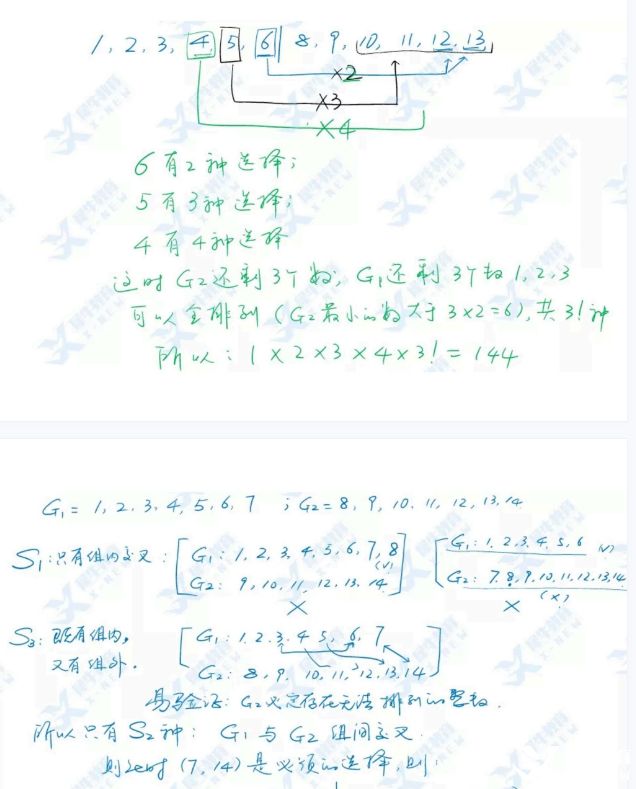 1, 2, 3, 4 5, 6 8, 9, 10, 11, 12, 13
×2
×3
×4
6有2种选择;
5有3种选择;
4有4种选择
这时G2还剩3个数, G1还剩3个数1,2,3
可以全排列(G2最小的数大于3×2=6),共3!种
所以: 1×2×3×4×3!=144
G1 = 1, 2, 3, 4, 5, 6, 7 ; G2 = 8, 9, 10, 11, 12, 13, 14
S1:只有组内交叉: G1: 1, 2, 3, 4, 5, 6, 7, 8 (√) G1: 1, 2, 3, 4, 5, 6 (√)
G2: 9, 10, 11, 12, 13, 14 × G2: 7, 8, 9, 10, 11, 12, 13, 14 (×) ×
S3: 既有组内, G1: 1, 2, 3, 4 5, 6, 7
又有组外. G2: 8, 9, 10, 11, 12, 13, 14
易验证: G2必定存在无法排列的整数.
所以只有S2种: G1与G2组间交叉.
则这时(7,14)是必须的选择,则: